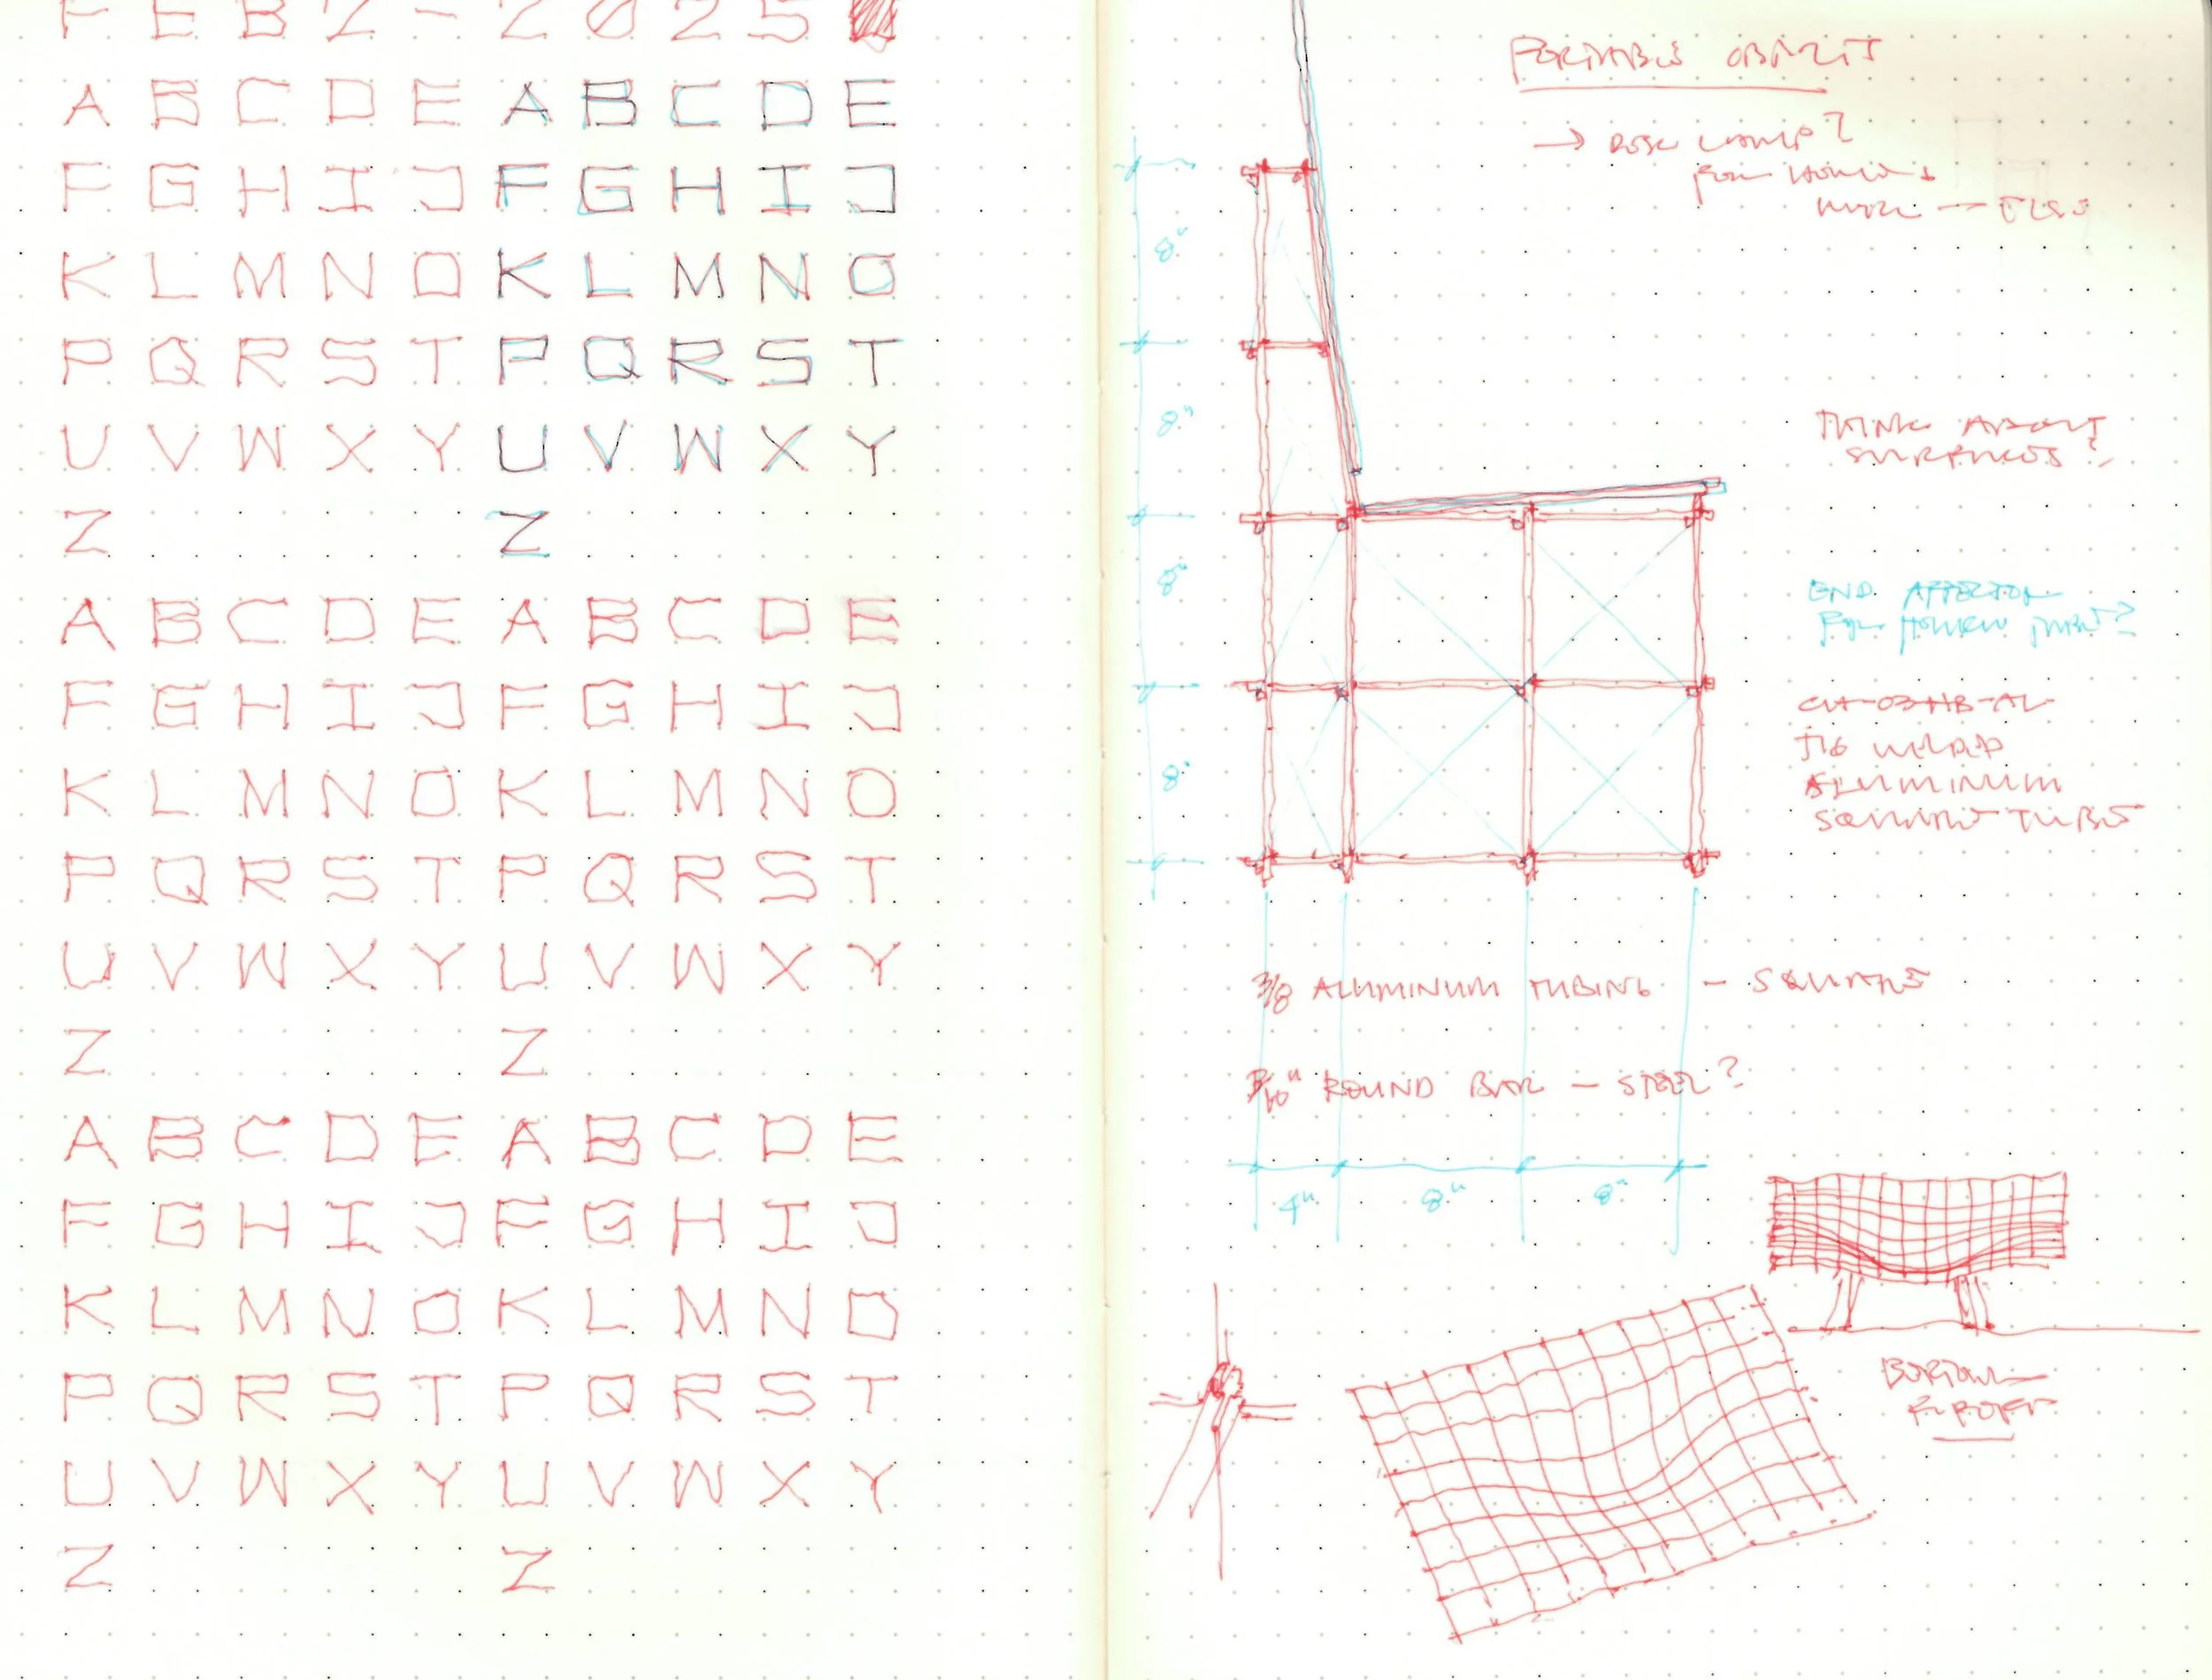 FEB 2 - 2025
A B C D E A B C D E
F G H I J F G H I J
K L M N O K L M N O
P Q R S T P Q R S T
U V W X Y U V W X Y
Z Z
A B C D E A B C D E
F G H I J F G H I J
K L M N O K L M N O
P Q R S T P Q R S T
U V W X Y U V W X Y
Z Z
A B C D E A B C D E
F G H I J F G H I J
K L M N O K L M N O
P Q R S T P Q R S T
U V W X Y U V W X Y
Z Z
PORTABLE OBJECTS
→ DESK LAMP?
FOR HOME +
WORK —
8"
8"
8"
8"
THINK ABOUT
SURFACES?
END AFFECTOR
FOR HOLLOW TUBE?
CH-03-HB-AL
TIG WELDED
ALUMINUM
SQUARE TUBE
3/8 ALUMINUM TUBING — SQUARE
ROUND BAR — STEEL?
4" 8" 8"
BERTOIA